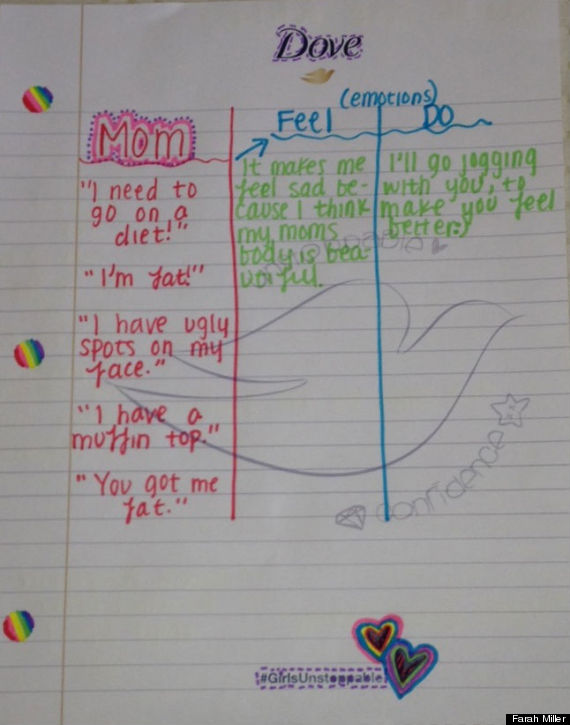 Dove
Mom
"I need to
go on a
diet!"
"I'm fat!"
"I have ugly
spots on my
face."
"I have a
muffin top."
"You got me
fat."
(emotions)
Feel
It makes me
feel sad be-
cause I think
my moms
body is bea-
utiful.
DO
I'll go jogging
with you, to
make you feel
better:)
confidence
#GirlsUnstoppable
Farah Miller